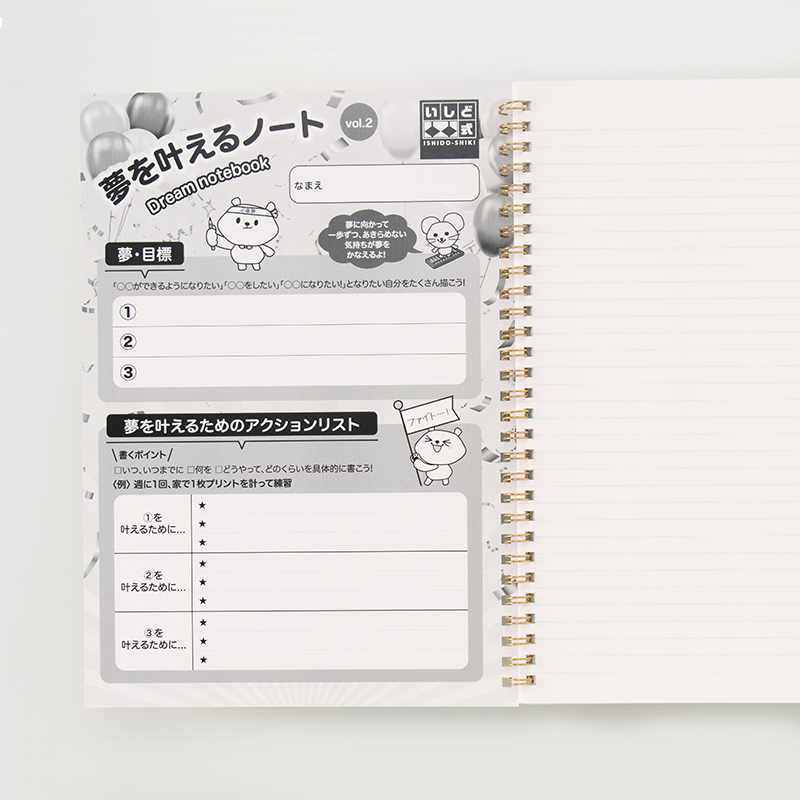 夢を叶えるノート
Dream notebook
vol.2
いしど式
ISHIDO-SHIKI
なまえ
夢に向かって
一歩ずつ、あきらめない
気持ちが夢を
かなえるよ!
夢・目標
「○○ができるようになりたい」「○○をしたい」「○○になりたい!」となりたい自分をたくさん描こう!
①
②
③
夢を叶えるためのアクションリスト
ファイト〜!
\書くポイント/
□いつ、いつまでに □何を □どうやって、どのくらいを具体的に書こう!
〈例〉週に1回、家で1枚プリントを計って練習
①を
叶えるために…
★
★
★
②を
叶えるために…
★
★
★
③を
叶えるために…
★
★
★